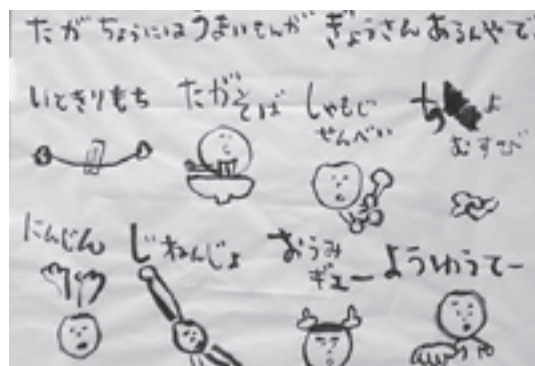 たがちょうにはうまいもんがぎょうさんあるんやで
いときりもち たがそば しゃもじ
せんべい
ち よ
むすび
にんじん じねんじょ おうみ
ギュー ようゆうてー